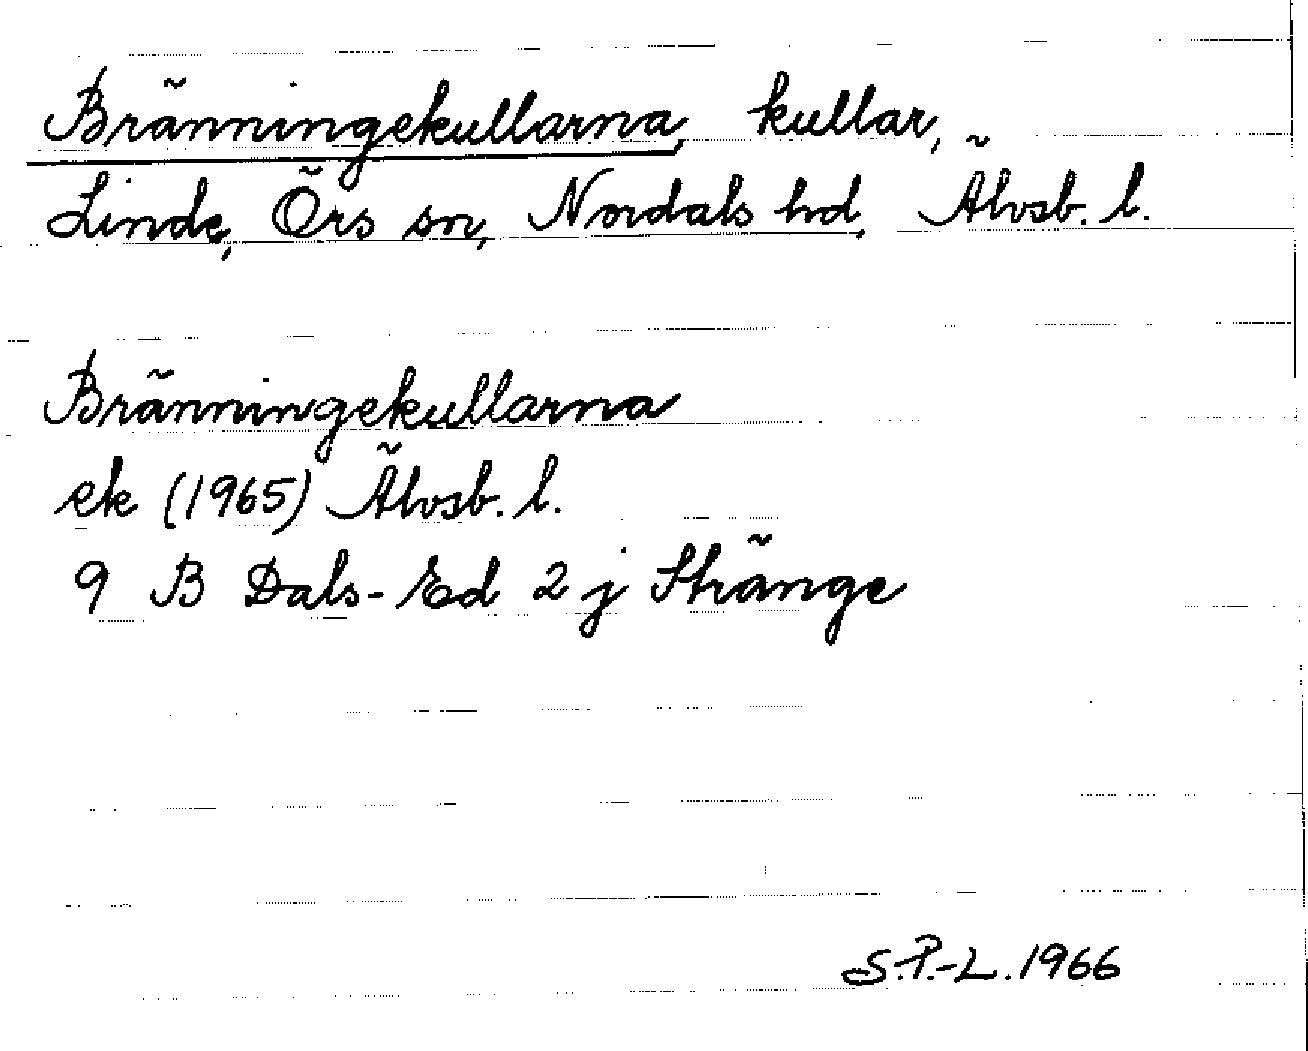 Bränningekullarna, kullar,
Linde, Örs sn, Nordals hd, Älvsb. l.
Bränningekullarna
ek (1965) Älvsb. l.
9 B Dals-Ed 2 j Stränge
S.P.-L. 1966